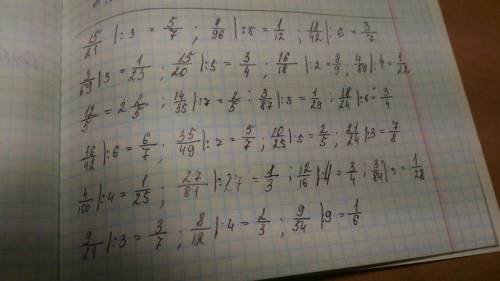 15/21 |:3 = 5/7 ; 8/96 |:8 = 1/12 ; 18/42 |:6 = 3/7
3/69 |3 = 1/23 ; 15/20 |:5 = 3/4 ; 16/18 |:2 = 8/9 ; 4/88 |:4 = 1/22
12/5 = 2 2/5 ; 14/35 |:7 = 2/5 ; 3/87 |:3 = 1/29 ; 18/24 |:6 = 3/4
36/42 |:6 = 6/7 ; 35/49 |:7 = 5/7 ; 10/25 |:5 = 2/5 ; 21/24 |:3 = 7/8
4/100 |:4 = 1/25 ; 27/81 |:27 = 1/3 ; 12/16 |:4 = 3/4 ; 3/84 |:3 = 1/28
9/21 |:3 = 3/7 ; 8/12 |:4 = 2/3 ; 9/54 |:9 = 1/6